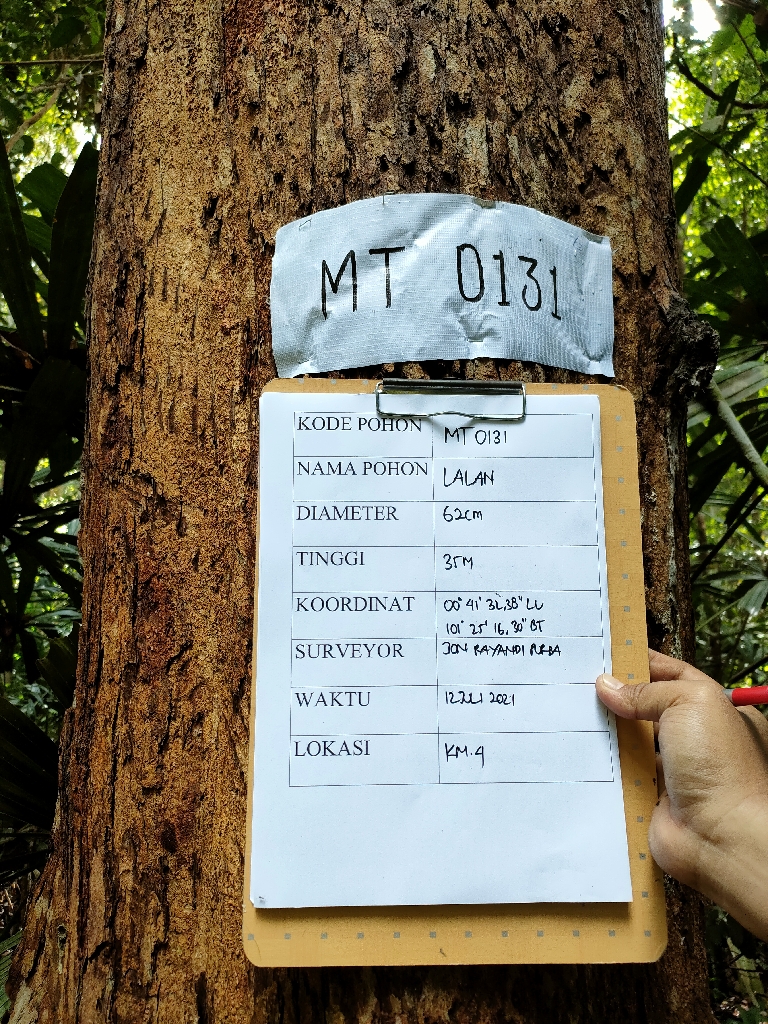 MT 0131
KODE POHON MT 0131
NAMA POHON LALAN
DIAMETER 62cm
TINGGI 35M
KOORDINAT 00° 41' 32,38" LU
101° 25' 16,30" BT
SURVEYOR JON RAYANDI
WAKTU 2021
LOKASI KM.4